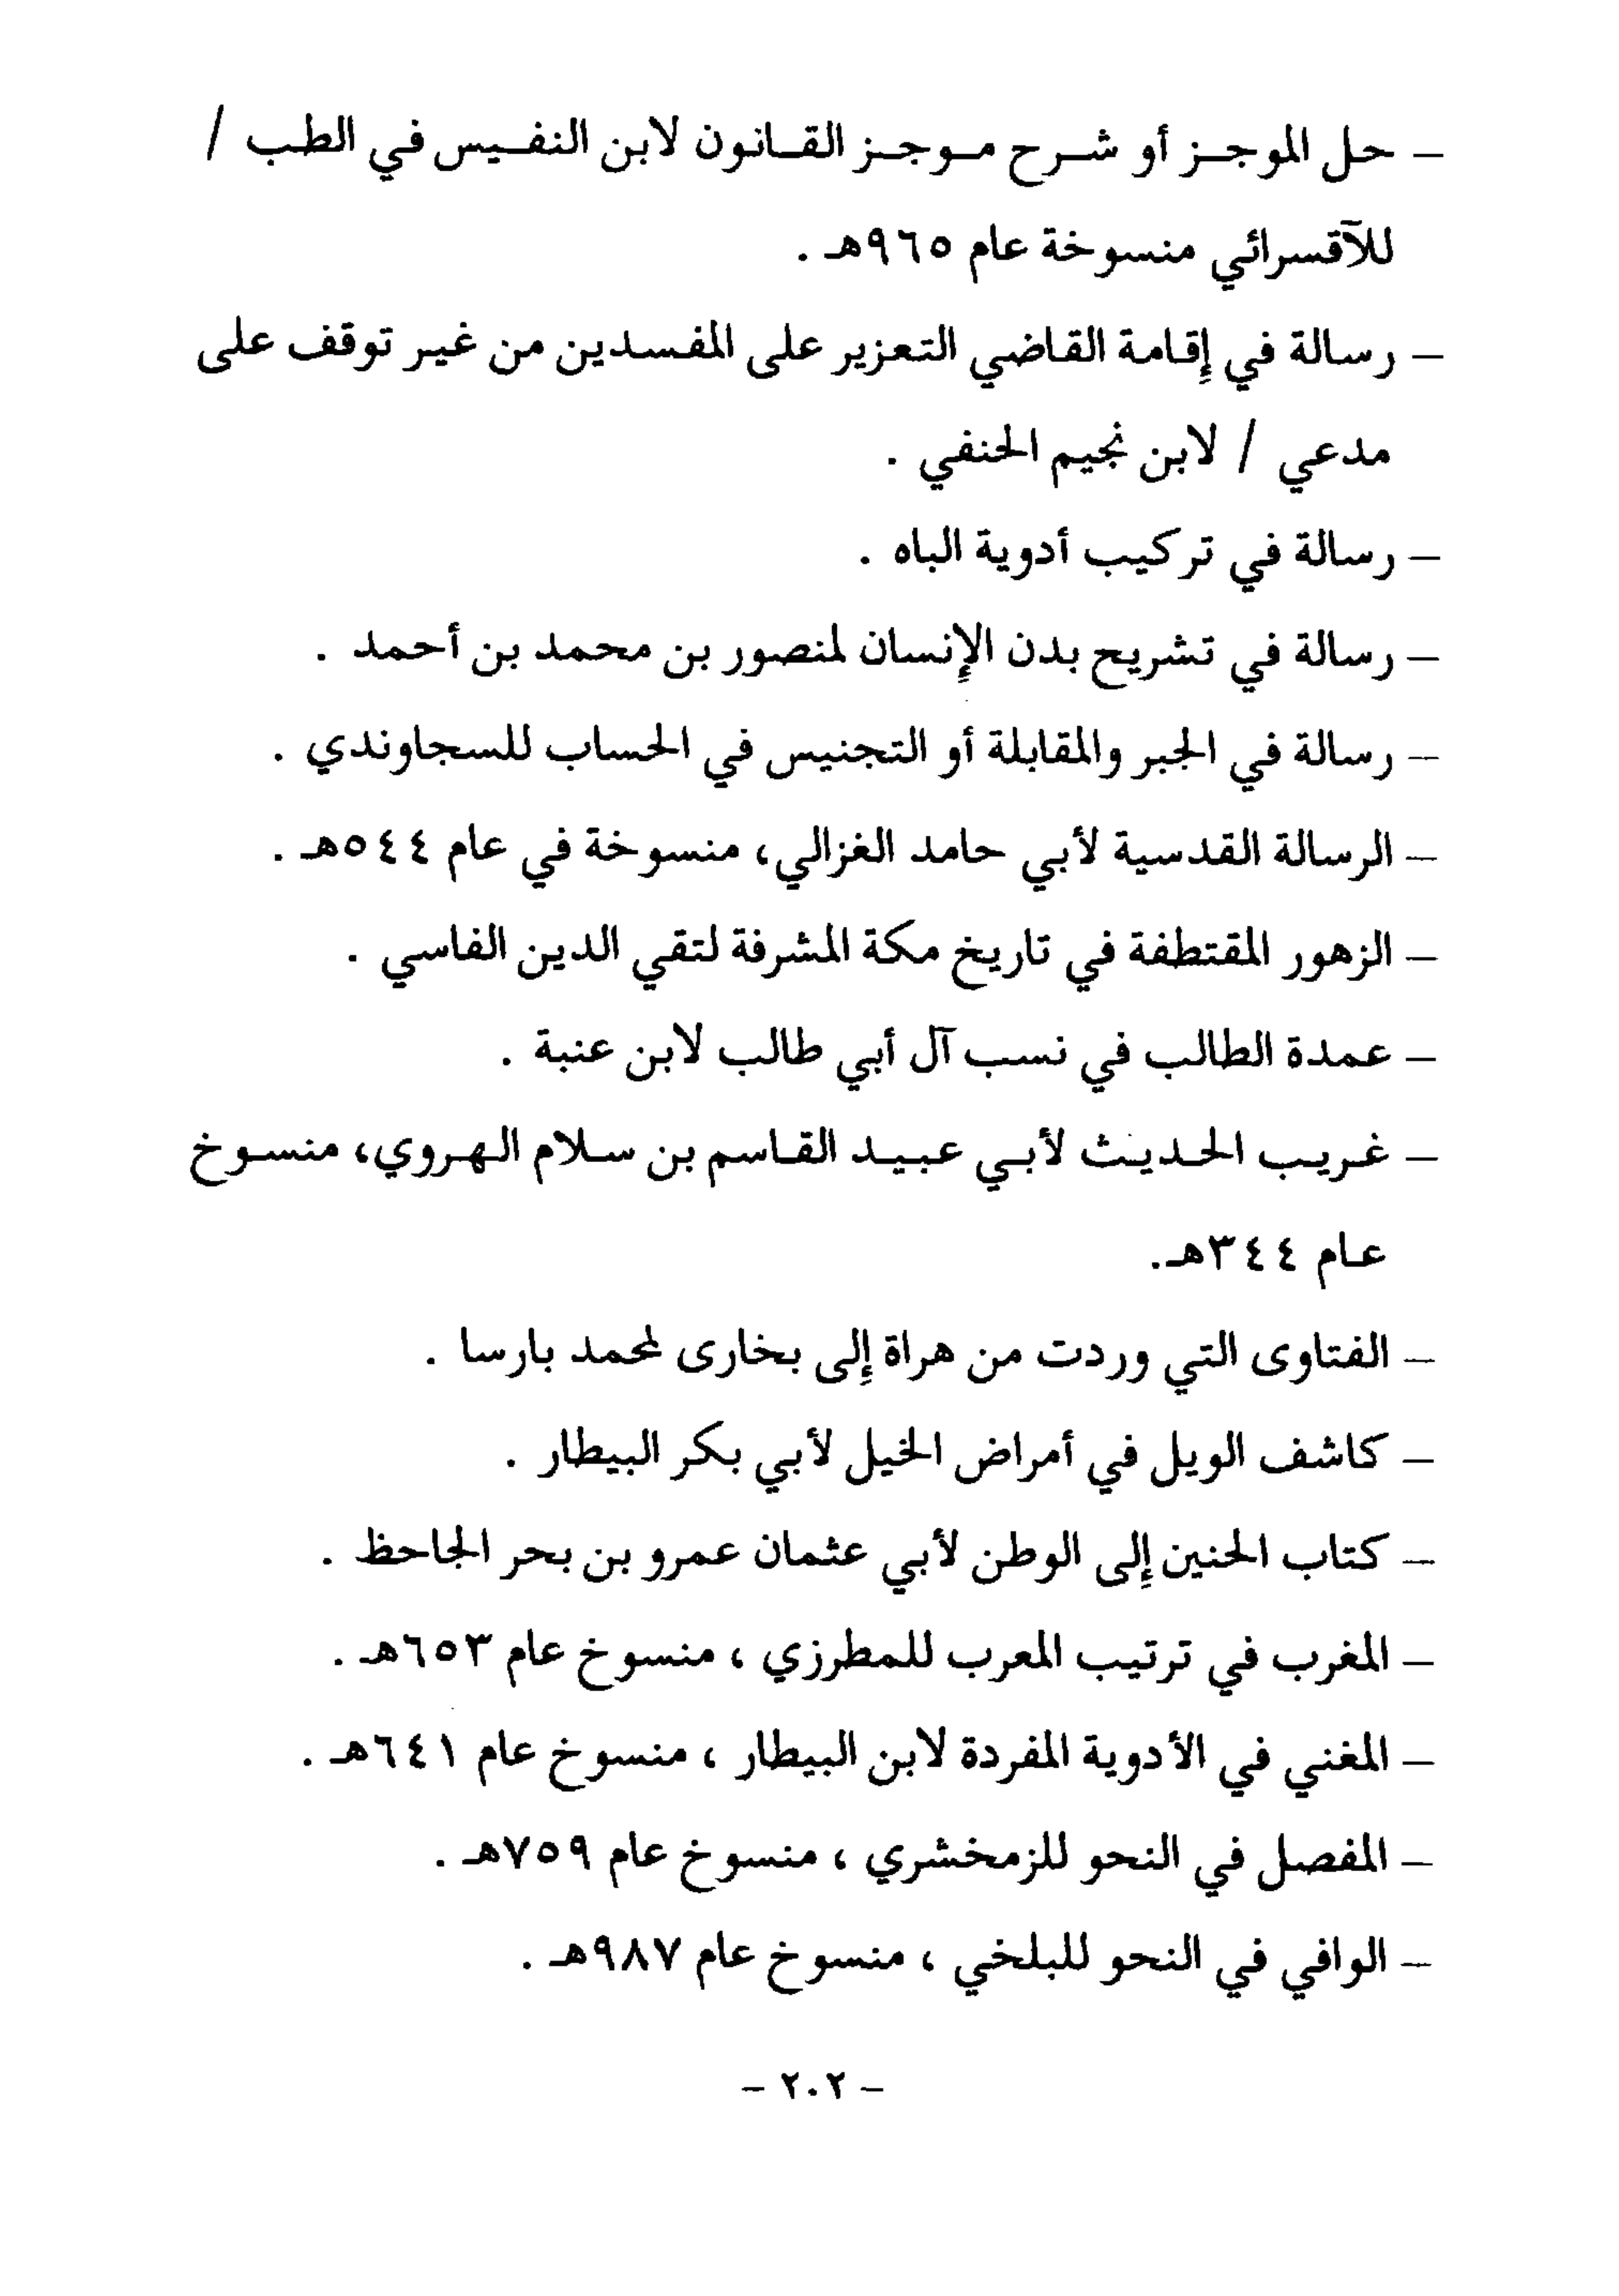 – حل الموجز أو شرح موجز القانون لابن النفيس في الطب /
للآقسرائي منسوخة عام ٩٦٥هـ .
– رسالة في إقامة القاضي التعزير على المفسدين من غير توقف على
مدعي / لابن نجيم الحنفي .
– رسالة في تركيب أدوية الباه .
– رسالة في تشريح بدن الإنسان لمنصور بن محمد بن أحمد .
– رسالة في الجبر والمقابلة أو التجنيس في الحساب للسجاوندي .
– الرسالة القدسية لأبي حامد الغزالي، منسوخة في عام ٥٤٤هـ .
– الزهور المقتطفة في تاريخ مكة المشرفة لتقي الدين الفاسي .
– عمدة الطالب في نسب آل أبي طالب لابن عنبة .
– غريب الحديث لأبي عبيد القاسم بن سلام الهروي، منسوخ
عام ٣٤٤هـ.
– الفتاوى التي وردت من هراة إلى بخارى لمحمد بارسا .
– كاشف الويل في أمراض الخيل لأبي بكر البيطار .
– كتاب الحنين إلى الوطن لأبي عثمان عمرو بن بحر الجاحظ .
– المغرب في ترتيب المعرب للمطرزي ، منسوخ عام ٦٥٣هـ .
– المغني في الأدوية المفردة لابن البيطار ، منسوخ عام ٦٤١هـ .
– المفصل في النحو للزمخشري ، منسوخ عام ٧٥٩هـ .
– الوافي في النحو للبلخي ، منسوخ عام ٩٨٧هـ .
– ٢٠٢ –